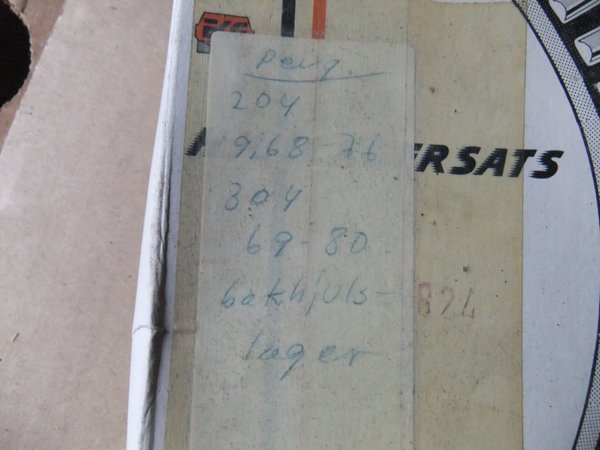 Peug.
204
9.68-76
304
69-80
bakhjuls-
lager
ERSATS
824